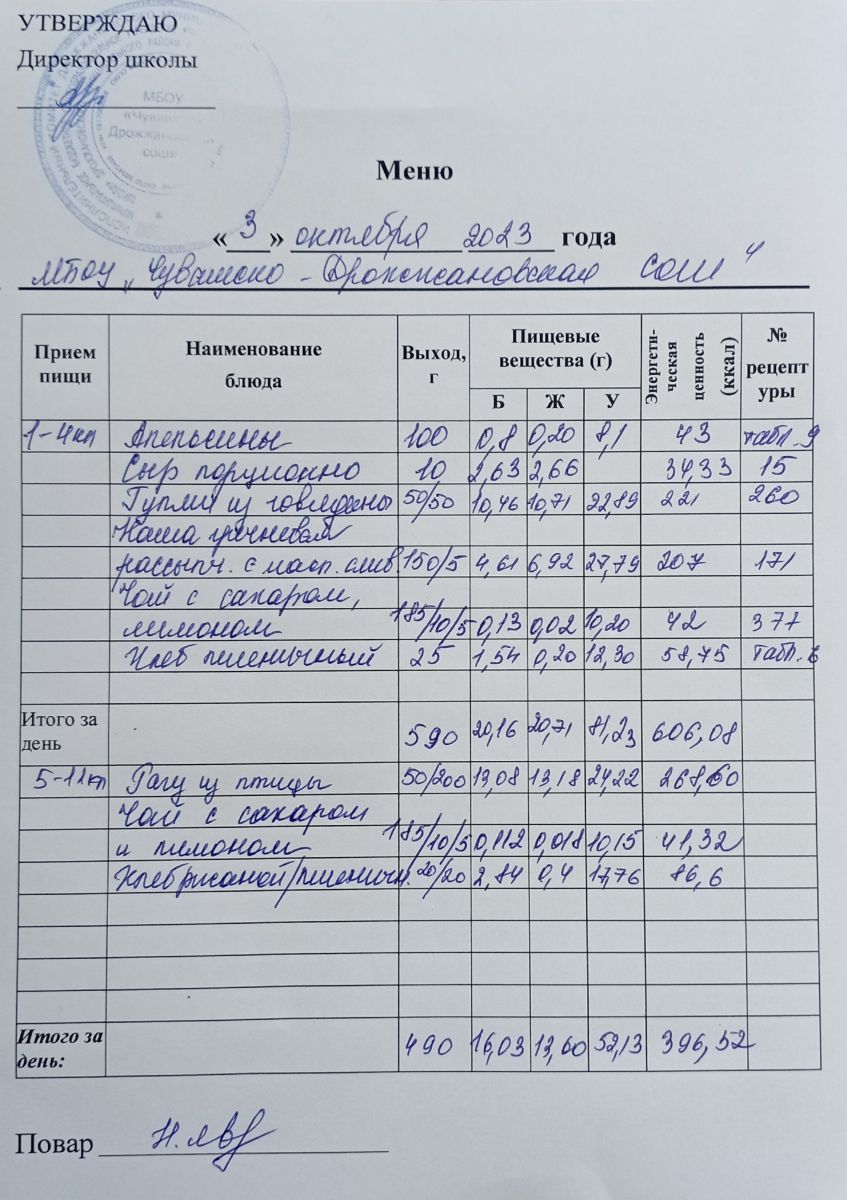 УТВЕРЖДАЮ
Директор школы
МБОУ
Меню
«3» октября 2023 года
МБОУ „Чувашско - Дрожжановская СОШ"
Прием пищи Наименование блюда Выход, г Пищевые вещества (г) Энергети-ческая ценность (ккал) № рецептуры
Б Ж У
1-4кл Апельсины 100 0,8 0,20 8,1 43 табл. 9
Сыр порционно 10 2,63 2,66 34,33 15
Гуляш из говядины 50/50 10,46 10,71 22,89 221 260
Каша гречневая
рассыпч. с масл. слив. 150/5 4,61 6,92 27,79 207 171
Чай с сахаром,
лимоном 185/10/5 0,13 0,02 10,20 42 377
Хлеб пшеничный 25 1,54 0,20 12,30 58,75 табл. 6
Итого за день 590 20,16 20,71 81,23 606,08
5-11кл Рагу из птицы 50/200 13,08 13,18 24,22 268,60
Чай с сахаром
и лимоном 185/10/5 0,112 0,018 10,15 41,32
Хлеб ржаной/пшеничн. 20/20 2,84 0,4 17,76 86,6
Итого за день: 490 16,03 13,60 52,13 396,52
Повар